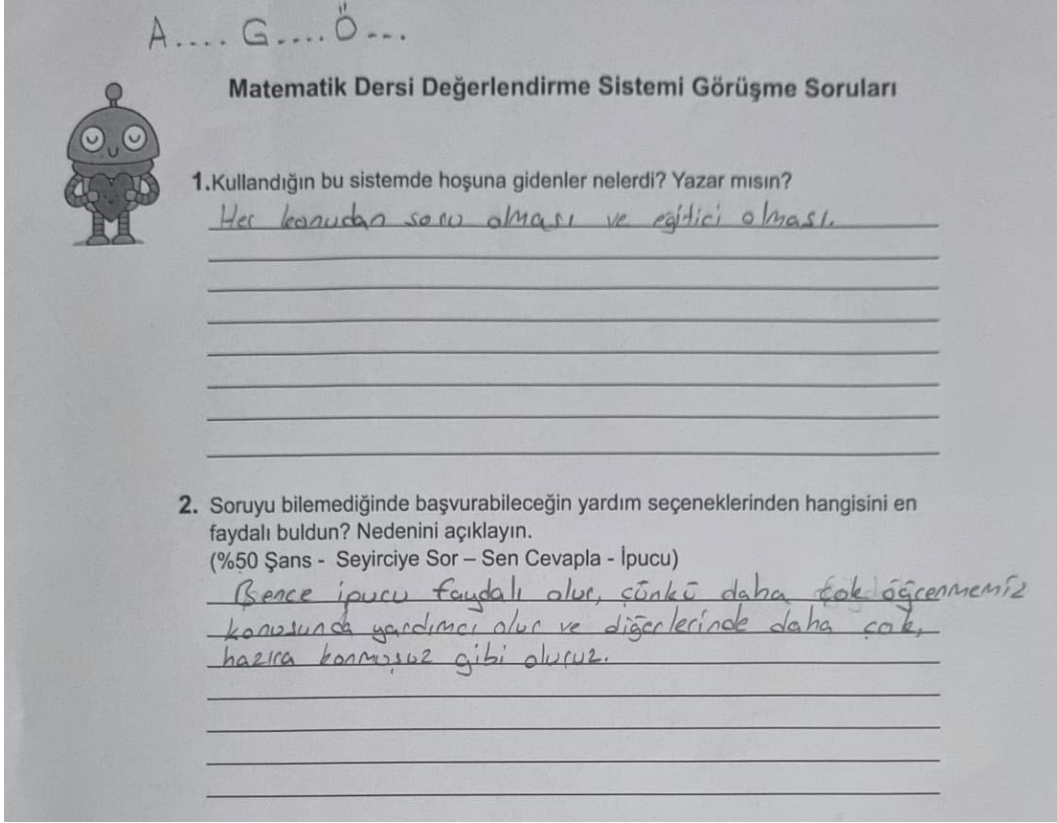 A.... G.... Ö...
Matematik Dersi Değerlendirme Sistemi Görüşme Soruları
1.Kullandığın bu sistemde hoşuna gidenler nelerdi? Yazar mısın?
Her konudan soru olması ve eğitici olması.
2. Soruyu bilemediğinde başvurabileceğin yardım seçeneklerinden hangisini en
faydalı buldun? Nedenini açıklayın.
(%50 Şans - Seyirciye Sor – Sen Cevapla - İpucu)
Bence ipucu faydalı olur, çünkü daha çok öğrenmemiz
konusunda yardımcı olur ve diğerlerinde daha çok,
hazıra konmuşuz gibi oluruz.